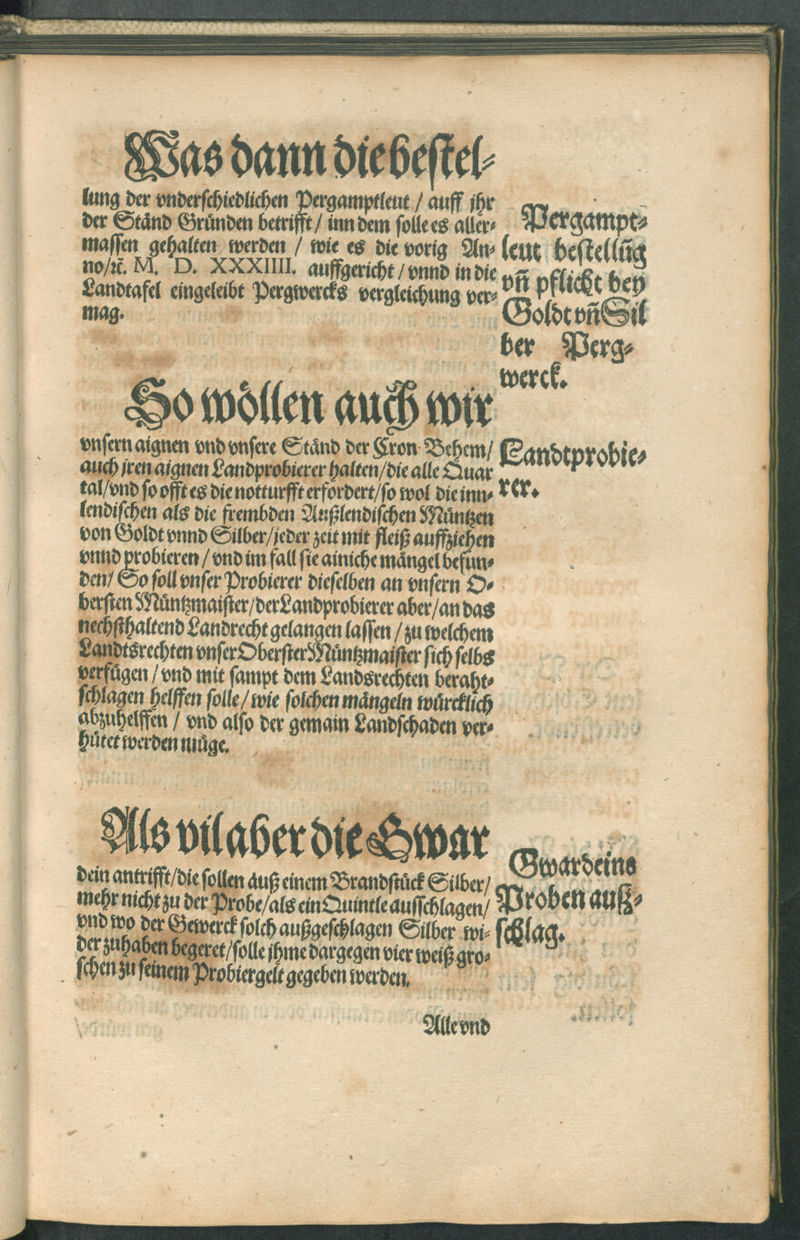 Was dann die bestel⸗
lung der vnderschiedlichen Pergamptleut / auff jhr
der Ständ Gründen betrifft / inn dem solle es aller⸗
massen gehalten werden / wie es die vorig An⸗
no/ꝛc. M. D. XXXIIII. auffgericht / vnnd in die
Landtafel eingeleibt Pergwercks vergleichung ver⸗
mag.
Pergampt⸗
leut bestellūg
vñ pflicht bey
Goldt vñ Sil
ber Perg⸗
werck.
So wöllen auch wir
vnsern aignen vnd vnsere Ständ der Cron Behem/
auch jren aignen Landprobierer halten/die alle Quar
tal/vnd so offt es die notturfft erfordert/so wol die inn⸗
lendischen als die frembden Außlendischen Müntzen
von Goldt vnnd Silber/jeder zeit mit fleiß auffziehen
vnnd probieren / vnd im fall sie ainiche mängel befun⸗
den/ So soll vnser Probierer dieselben an vnsern O⸗
bersten Müntzmaister/der Landprobierer aber/an das
nechsthaltend Landrecht gelangen lassen / zu welchem
Landtsrechten vnser Oberster Müntzmaister sich selbs
verfügen / vnd mit sampt dem Landsrechten beraht⸗
schlagen helffen solle/ wie solchen mängeln würcklich
abzuhelffen / vnd also der gemain Landschaden ver⸗
hütet werden müge.
Landtprobie⸗
rer.
Als vil aber die Gwar
dein antrifft/die sollen auß einem Brandstück Silber/
mehr nicht zu der Probe/als ein Quintle ausschlagen/
vnd wo der Gewerck solch außgeschlagen Silber wi⸗
der zuhaben begeret/solle jhme dargegen vier weiß gro⸗
schen zu seinem Probiergelt gegeben werden.
Gwardeins
Proben auß⸗
schlag.
Alle vnd